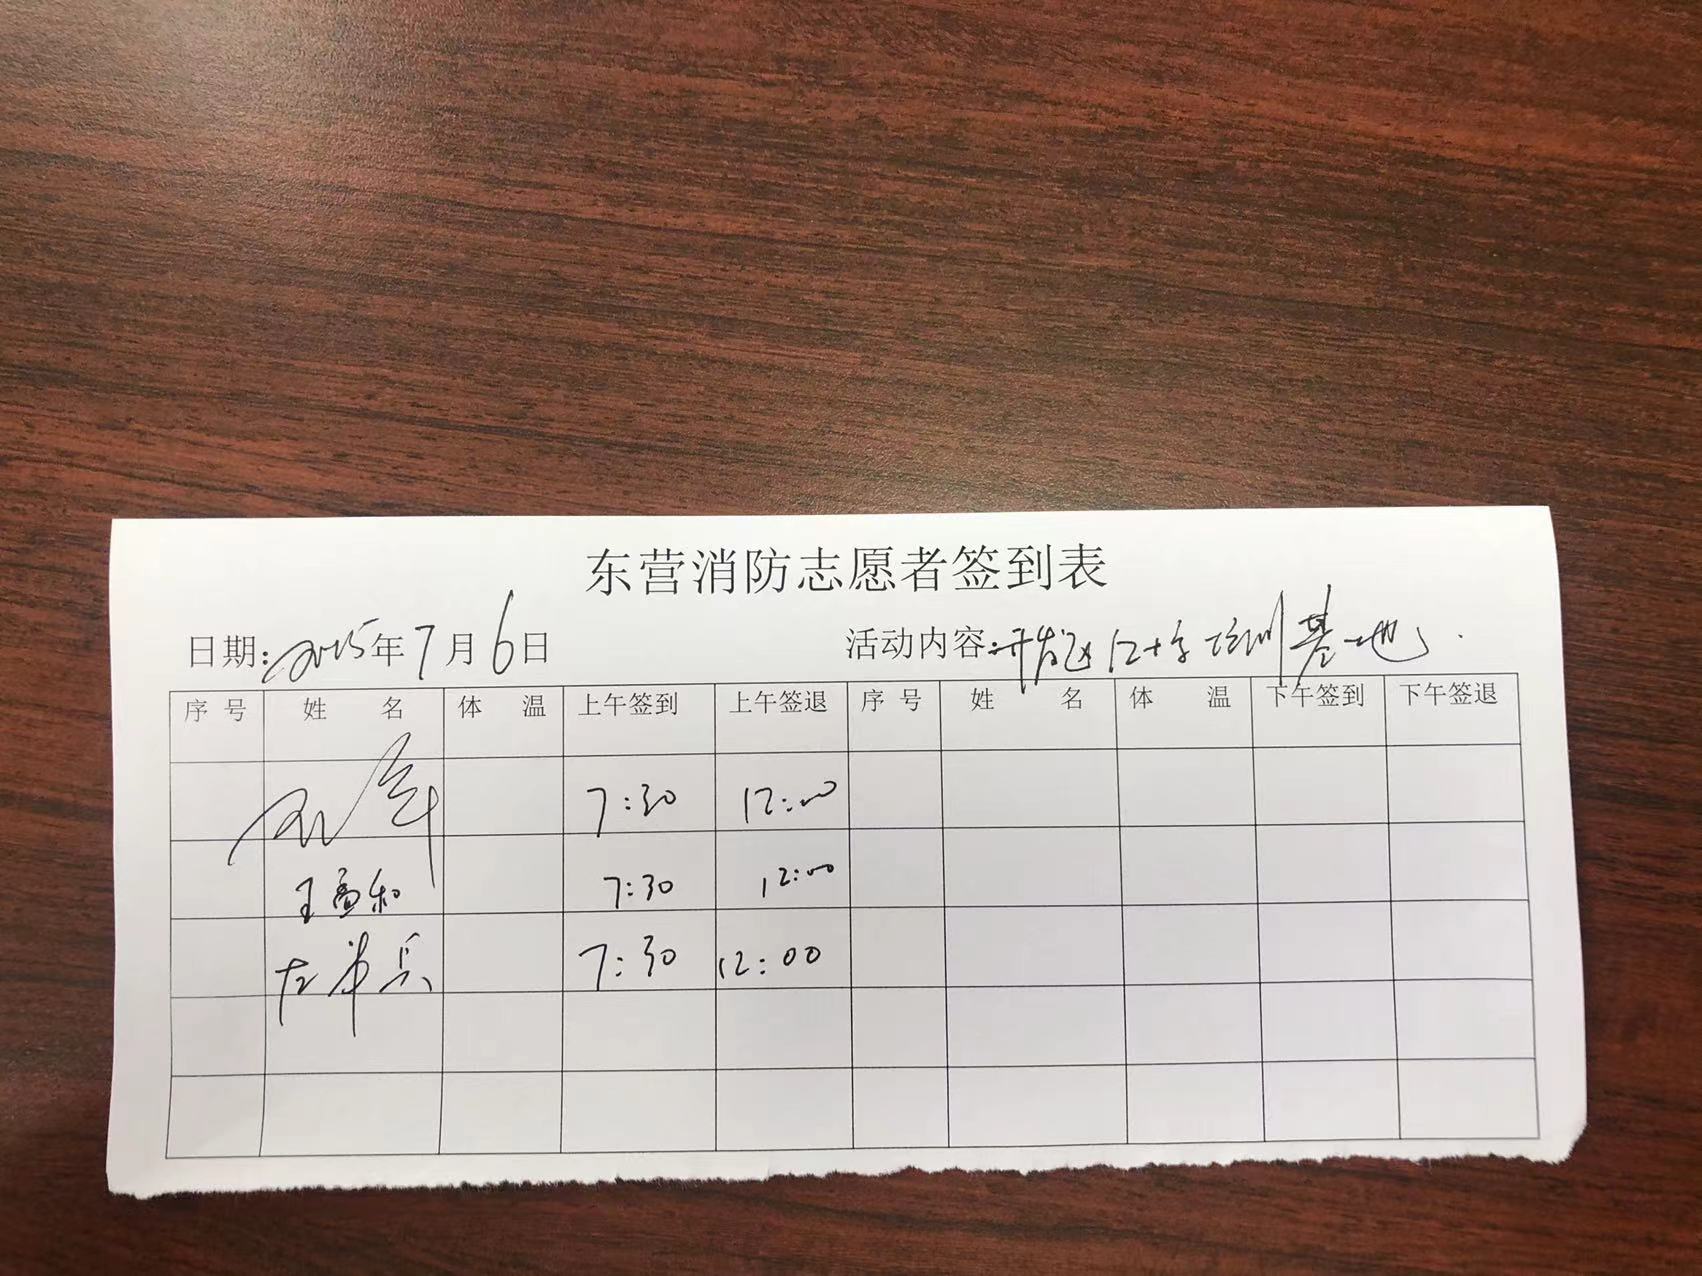 东营消防志愿者签到表
日期:2025年7月6日 活动内容:开发区红十字培训基地.
序号 姓名 体温 上午签到 上午签退 序号 姓名 体温 下午签到 下午签退
7:30 12:00
王 和 7:30 12:00
左 兵 7:30 12:00